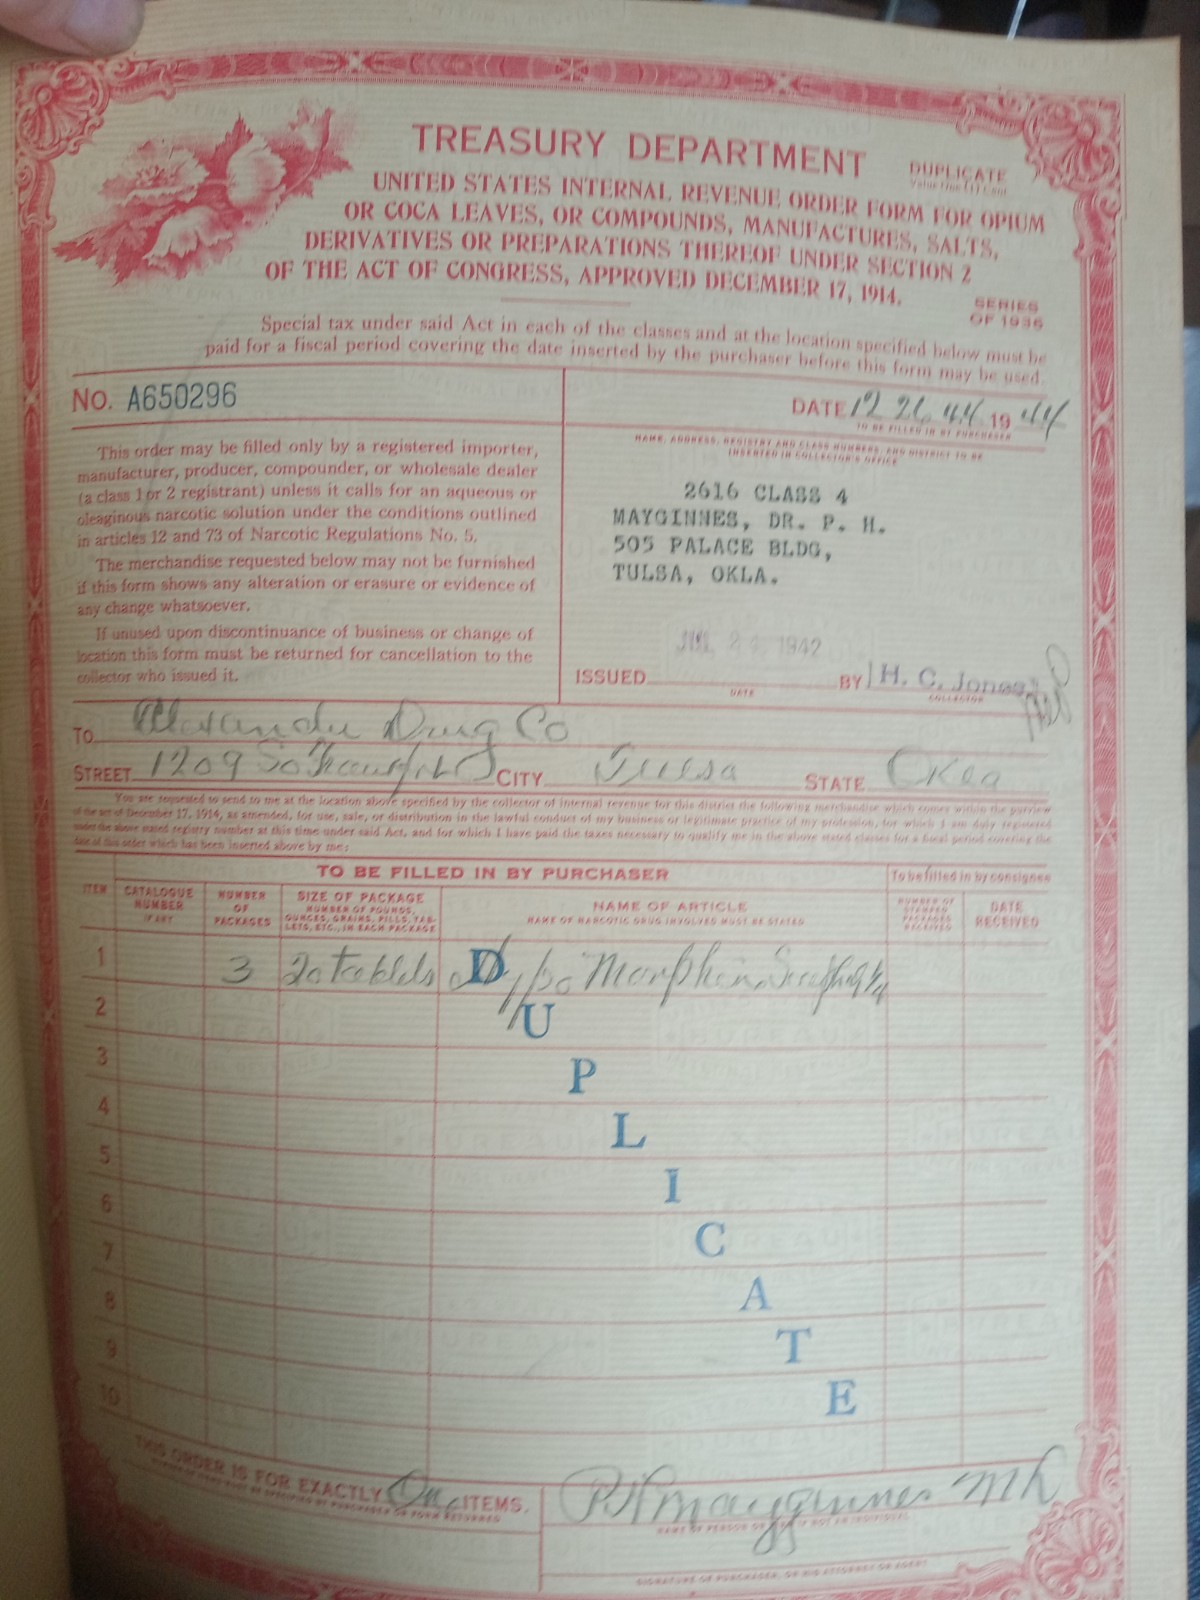 TREASURY DEPARTMENT
DUPLICATE
UNITED STATES INTERNAL REVENUE ORDER FORM FOR OPIUM
OR COCA LEAVES, OR COMPOUNDS, MANUFACTURES, SALTS,
DERIVATIVES OR PREPARATIONS THEREOF UNDER SECTION 2
OF THE ACT OF CONGRESS, APPROVED DECEMBER 17, 1914.
SERIES
OF 1936
Special tax under said Act in each of the classes and at the location specified below must be
paid for a fiscal period covering the date inserted by the purchaser before this form may be used.
No. A650296
DATE 12 26 44 19 44
TO BE FILLED IN BY PURCHASER
This order may be filled only by a registered importer,
manufacturer, producer, compounder, or wholesale dealer
(a class 1 or 2 registrant) unless it calls for an aqueous or
oleaginous narcotic solution under the conditions outlined
in articles 12 and 73 of Narcotic Regulations No. 5.
The merchandise requested below may not be furnished
if this form shows any alteration or erasure or evidence of
any change whatsoever.
If unused upon discontinuance of business or change of
location this form must be returned for cancellation to the
collector who issued it.
NAME, ADDRESS, REGISTRY AND CLASS NUMBERS, AND DISTRICT TO BE
INSERTED IN COLLECTOR'S OFFICE
2616 CLASS 4
MAYGINNES, DR. P. H.
505 PALACE BLDG,
TULSA, OKLA.
1942
ISSUED BY H. C. Jones
DATE COLLECTOR
To Alexander Drug Co
STREET 1209 So Frankfort CITY Tulsa STATE Okla
You are requested to send to me at the location above specified by the collector of internal revenue for this district the following merchandise which comes within the purview
of the act of December 17, 1914, as amended, for use, sale, or distribution in the lawful conduct of my business or legitimate practice of my profession, for which I am duly registered
under the above stated registry number at this time under said Act, and for which I have paid the taxes necessary to qualify me in the above stated classes for a fiscal period covering the
date of this order which has been inserted above by me:
TO BE FILLED IN BY PURCHASER
To be filled in by consignee
ITEM
CATALOGUE
NUMBER
IF ANY
NUMBER
OF
PACKAGES
SIZE OF PACKAGE
NUMBER OF POUNDS,
OUNCES, GRAINS, PILLS, TAB-
LETS, ETC., IN EACH PACKAGE
NAME OF ARTICLE
NAME OF NARCOTIC DRUG INVOLVED MUST BE STATED
NUMBER OF
STAMPED
PACKAGES
RECEIVED
DATE
RECEIVED
1 3 20 tablets Hypo Morphin Sulphate 1/4
2
3
4
5
6
7
8
9
10
DUPLICATE
THIS ORDER IS FOR EXACTLY One ITEMS.
P H Mayginnes MD
SIGNATURE OF PURCHASER, OR HIS ATTORNEY OR AGENT